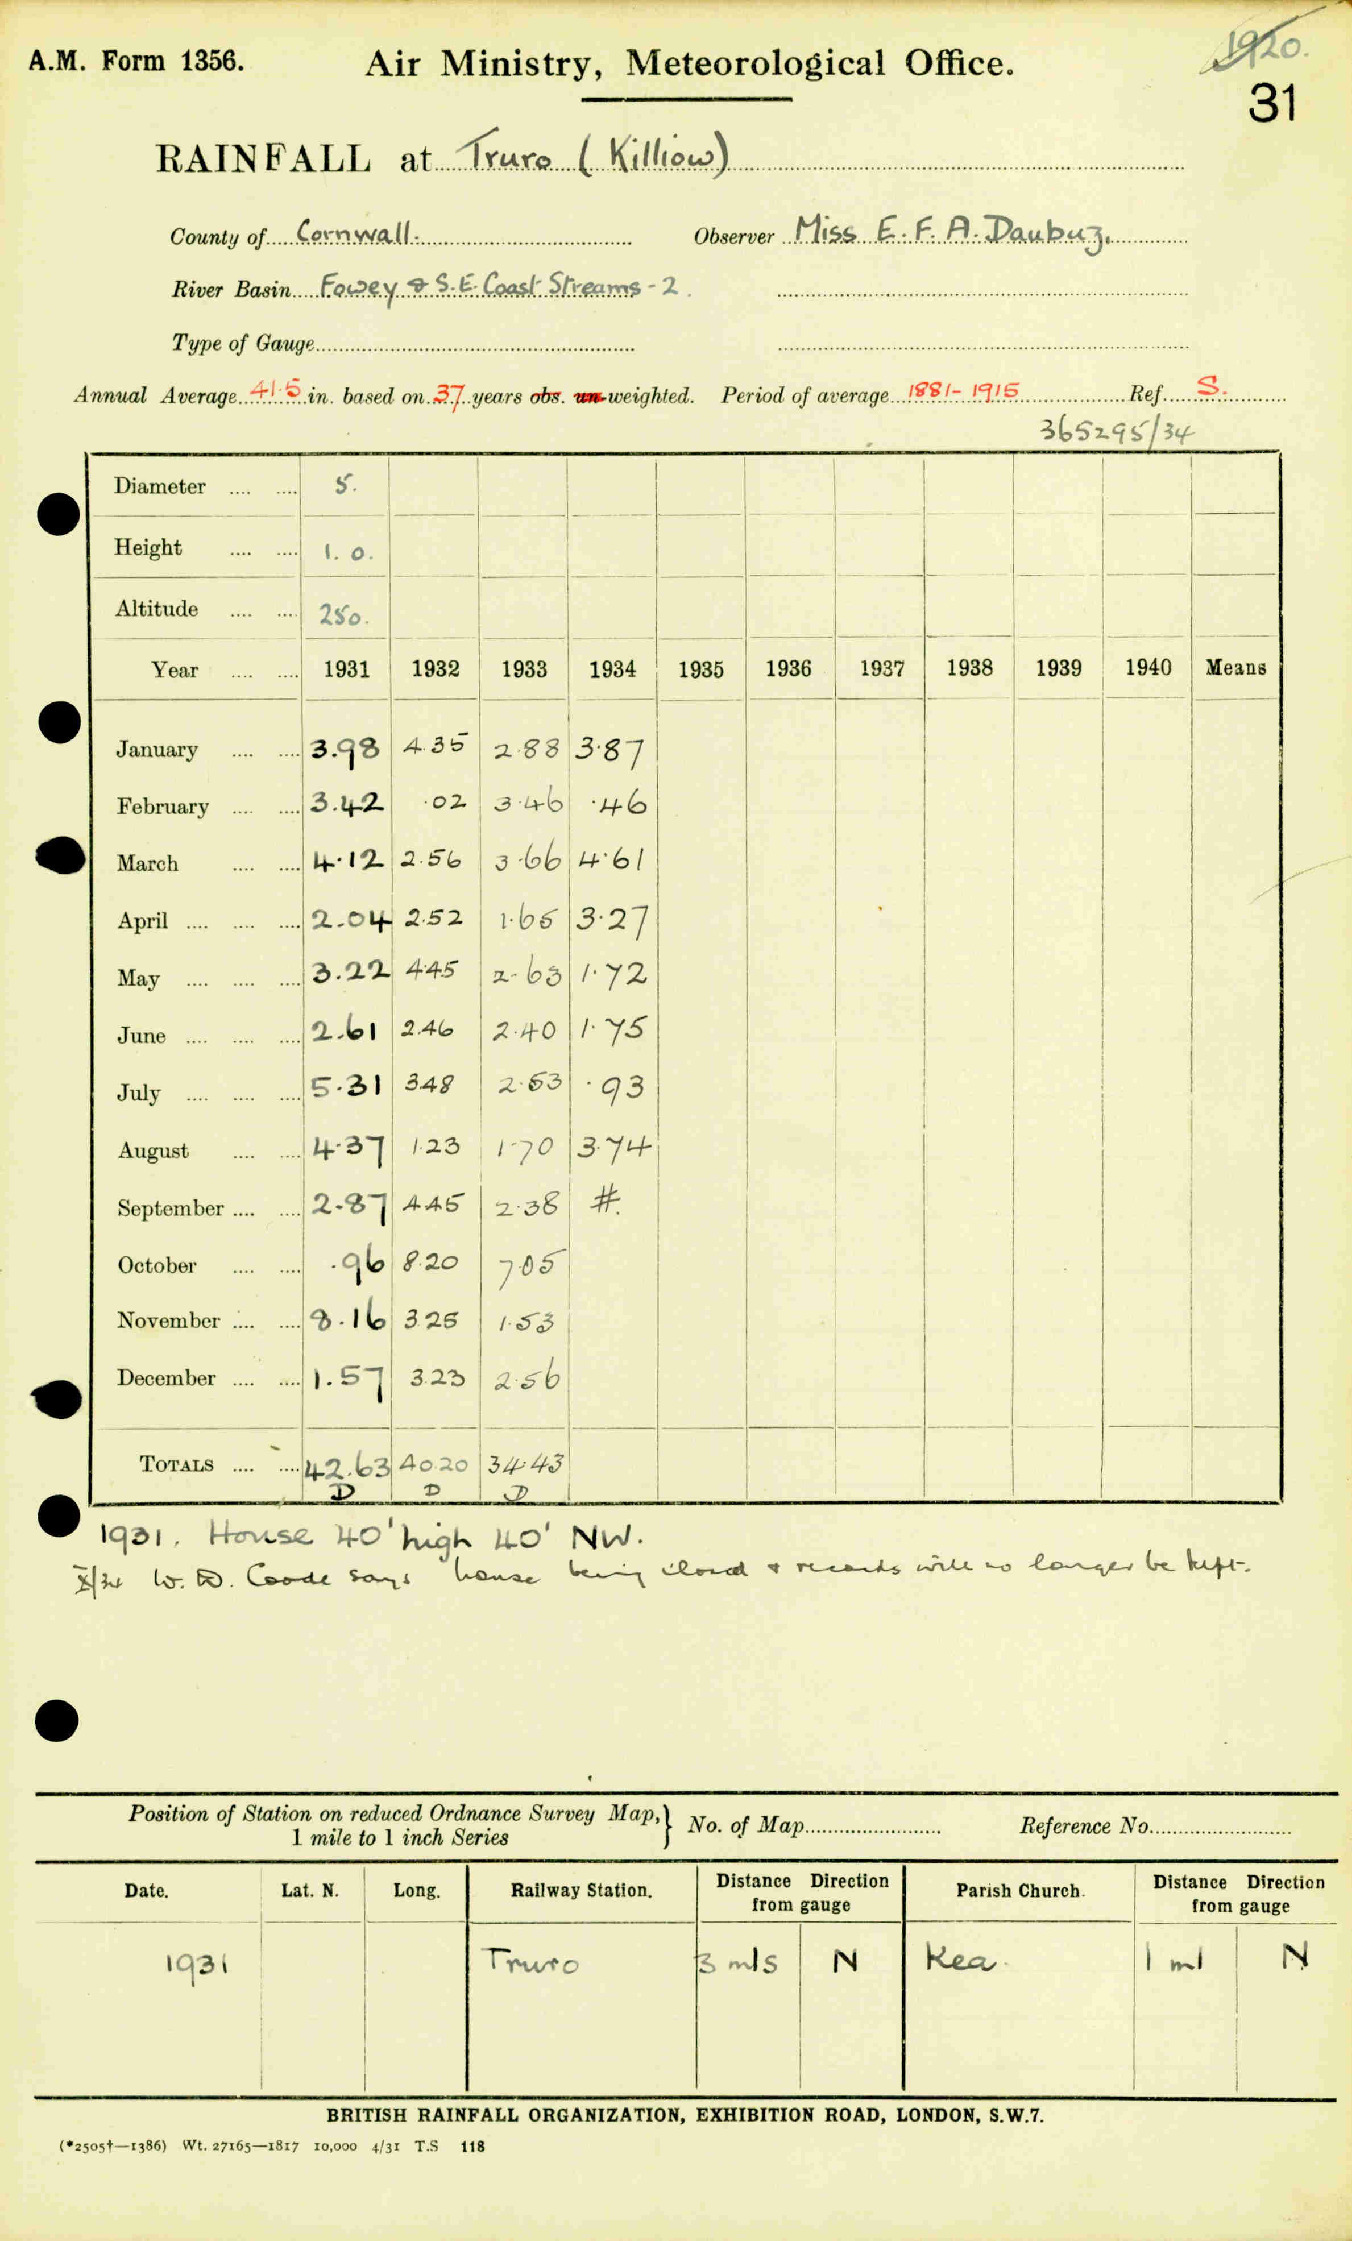 A.M. Form 1356. Air Ministry, Meteorological Office. 1920.
31
RAINFALL at Truro (Killiow)
County of Cornwall. Observer Miss E. F. A. Daubuz.
River Basin Fowey & S.E. Coast Streams - 2.
Type of Gauge
Annual Average 41.5 in. based on 37 years obs. un-weighted. Period of average 1881-1915 Ref. S.
365295/34
Diameter .... .... 5.
Height .... .... 1. 0.
Altitude .... .... 250.
Year .... .... 1931 1932 1933 1934 1935 1936 1937 1938 1939 1940 Means
January .... .... 3.98 4.35 2.88 3.87
February .... .... 3.42 .02 3.46 .46
March .... .... 4.12 2.56 3.66 4.61
April .... .... .... 2.04 2.52 1.65 3.27
May .... .... .... 3.22 4.45 2.63 1.72
June .... .... .... 2.61 2.46 2.40 1.75
July .... .... .... 5.31 3.48 2.53 .93
August .... .... 4.37 1.23 1.70 3.74
September .... .... 2.87 4.45 2.38 #.
October .... .... .96 8.20 7.05
November .... .... 8.16 3.25 1.53
December .... .... 1.57 3.23 2.56
TOTALS .... .... 42.63 40.20 34.43
D D D
1931. House 40' high 40' NW.
X/34 W. D. Coode says house being closed & records will no longer be kept.
Position of Station on reduced Ordnance Survey Map, } No. of Map Reference No.
1 mile to 1 inch Series
Date. Lat. N. Long. Railway Station. Distance Direction from gauge Parish Church. Distance Direction from gauge
1931 Truro 3 mls N Kea. 1 ml N
BRITISH RAINFALL ORGANIZATION, EXHIBITION ROAD, LONDON, S.W.7.
(*2505†—1386) Wt. 27165—1817 10,000 4/31 T.S 118